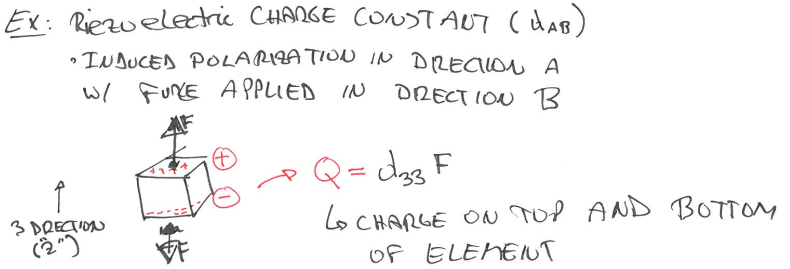 Ex: Piezoelectric CHARGE CONSTANT (dAB)
• INDUCED POLARIZATION IN DIRECTION A
W/ FORCE APPLIED IN DIRECTION B
F
+
Q = d33 F
-
3 DIRECTION
("z")
F
↳ CHARGE ON TOP AND BOTTOM
OF ELEMENT